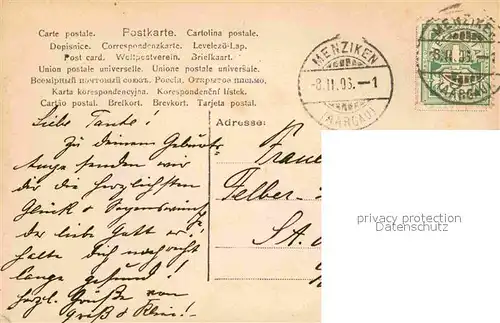 Carte postale. Postkarte. Cartolina postale.
Dopisnice. Correspondenzkarte. Levelező-Lap.
Post card. Weltpostverein. Briefkaart.
Union postale universelle. Unione postale universale.
Всемирный почтовый союз. Россія. Открытое письмо.
Karta korespondencyjna. Korespondenční lístek.
Cartão postal. Brevkort. Brevkort. Tarjeta postal.
MENZIKEN
-8.II.06.-1
(AARGAU)
MENZIKEN
8.II.06.
(AARGAU)
Adresse:
Liebe Tante!
Zu deinem Geburts-
tage senden wir
dir die herzlichsten
Glück & Segenswünsche
der liebe Gott er-
halte dich noch recht
lange gesund!
herzl. Grüße von
groß & klein!
Frau
Felber-
St.
privacy protection
Datenschutz